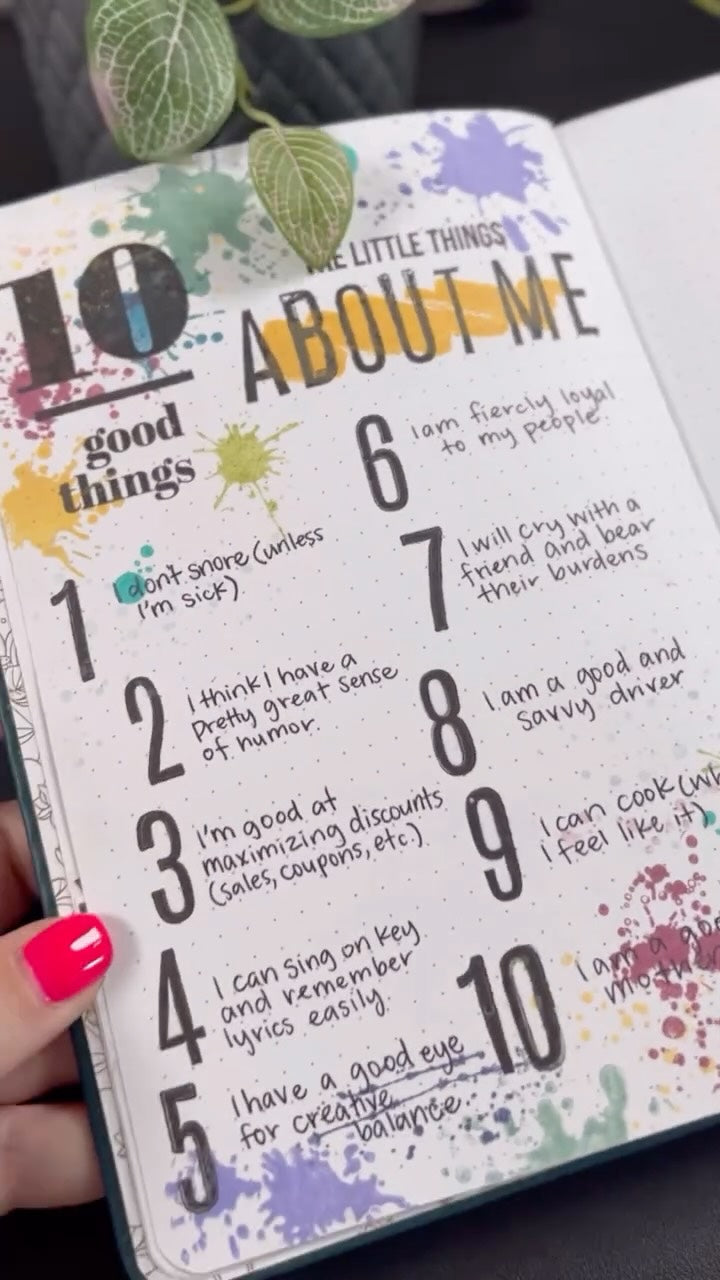 10
good
things
THE LITTLE THINGS
ABOUT ME
1
I dont snore (unless
I'm sick)
2
I think I have a
pretty great sense
of humor.
3
I'm good at
maximizing discounts
(sales, coupons, etc.)
4
I can sing on key
and remember
lyrics easily.
5
I have a good eye
for creative
balance.
6
I am fiercly loyal
to my people.
7
I will cry with a
friend and bear
their burdens
8
I am a good and
savvy driver
9
I can cook (wh
i feel like it)
10
I am a goo
mother